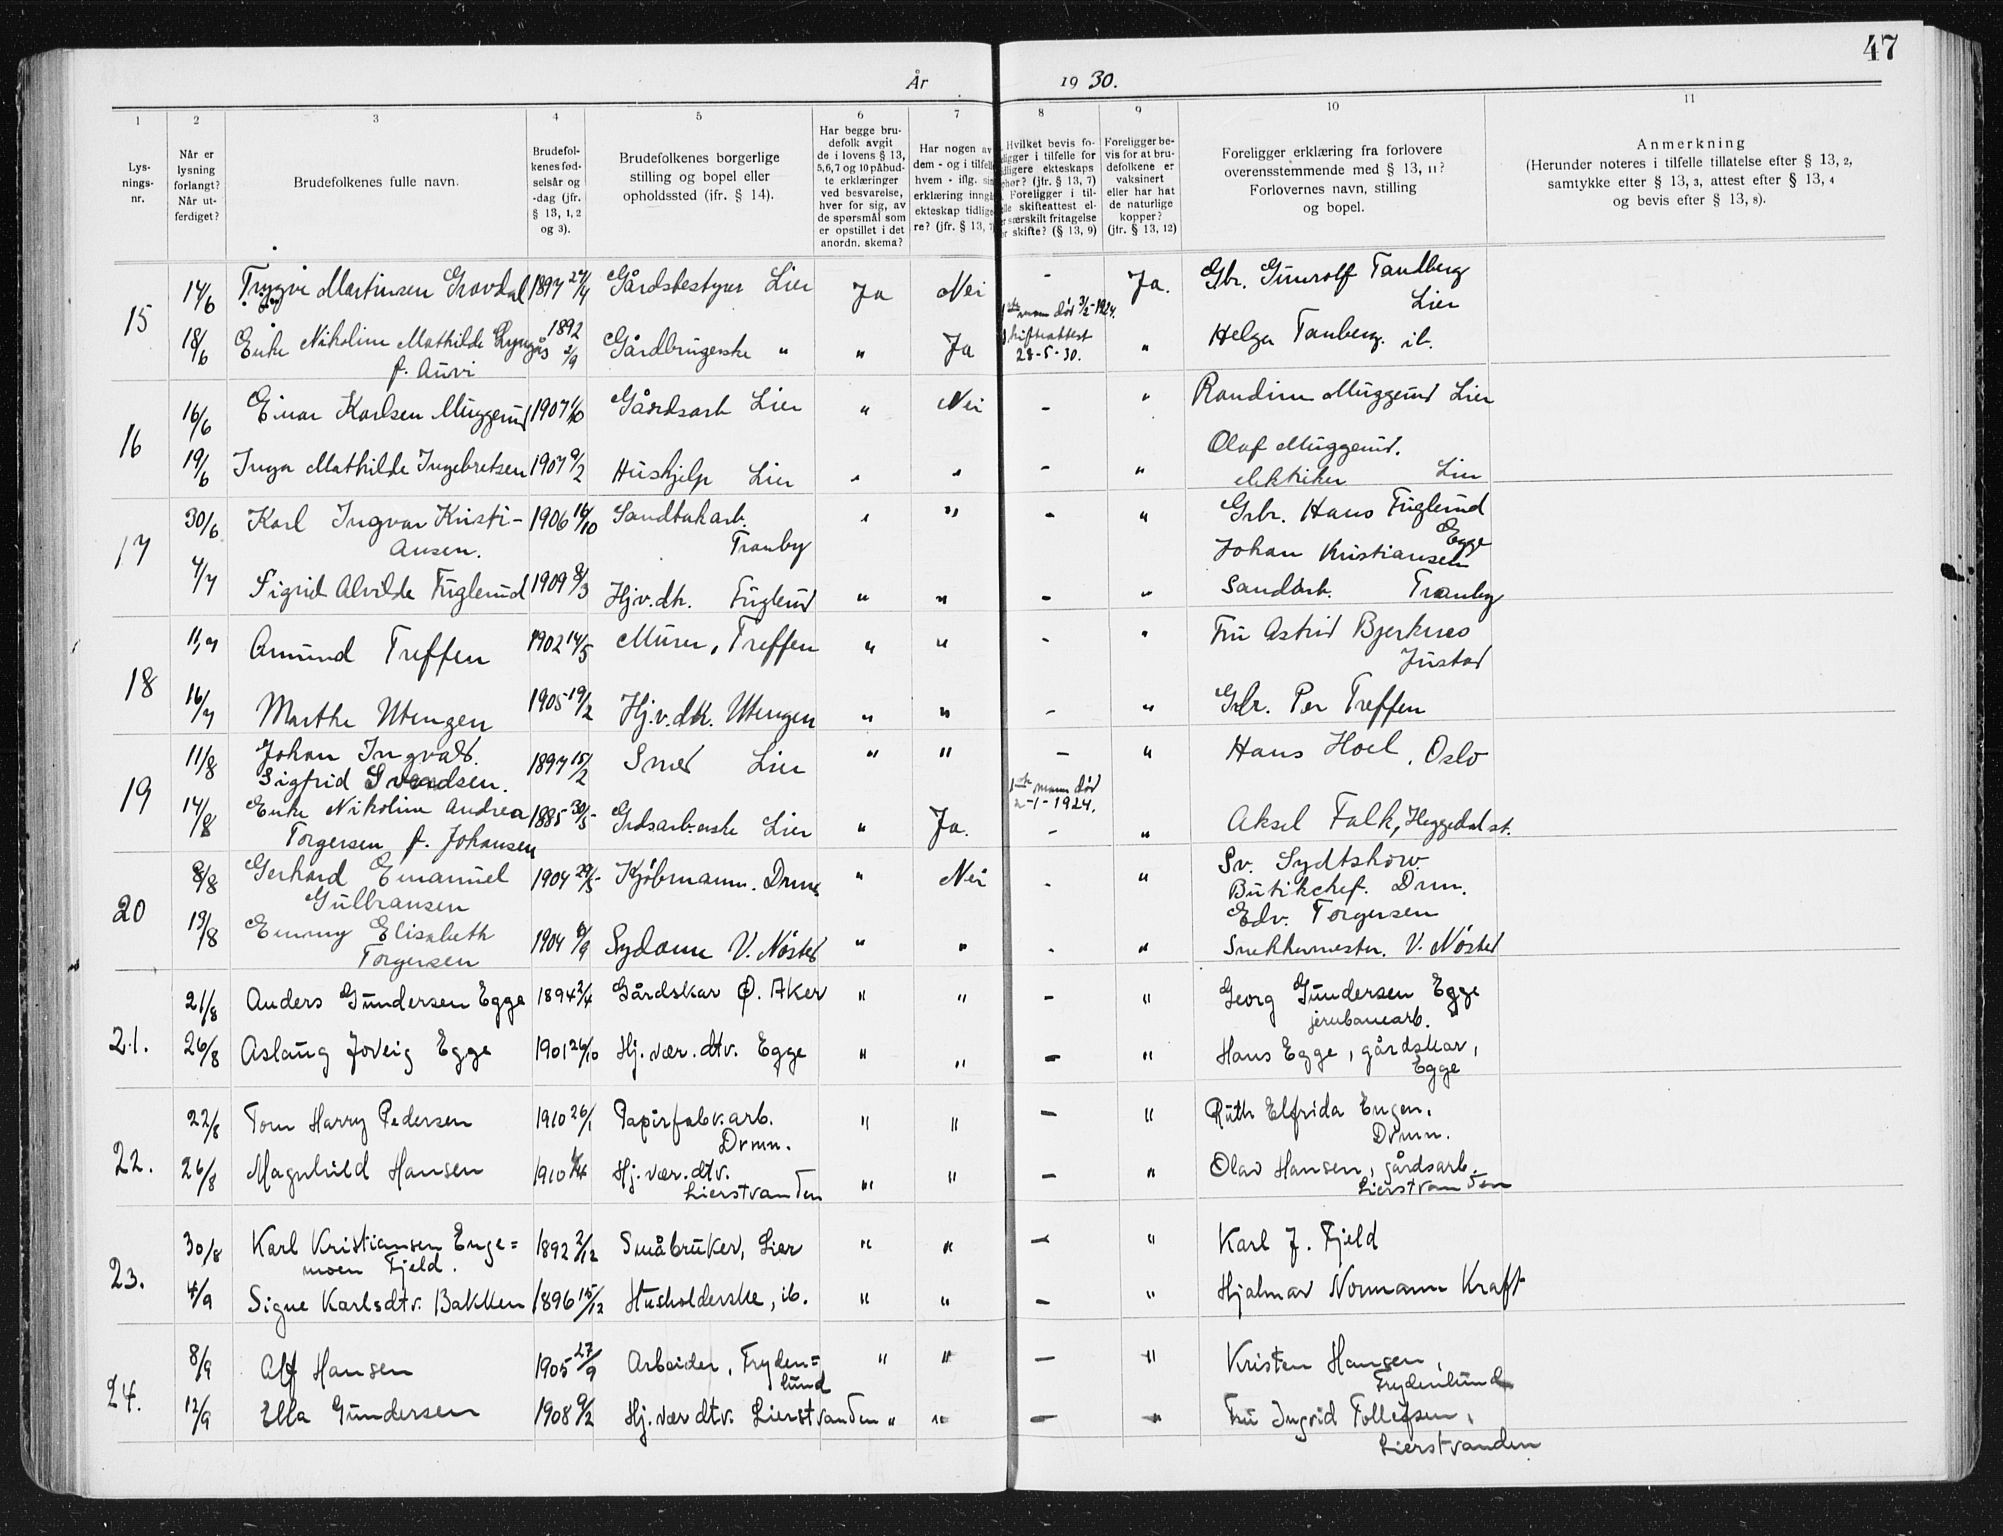 47
År 1930.
1 2 3 4 5 6 7 8 9 10 11
Lys-
nings-
nr.
Når er
lysning
forlangt?
Når ut-
ferdiget?
Brudefolkenes fulle navn.
Brudefol-
kenes fød-
selsår og
-dag (jfr.
§ 13, 1, 2
og 3).
Brudefolkenes borgerlige
stilling og bopel eller
opholdssted (jfr. § 14).
Har begge bru-
defolk avgit
de i lovens § 13,
5,6,7 og 10 påbud-
te erklæringer
ved besvarelse,
hver for sig, av
de spørsmål som
er opstillet i det
anordn. skema?
Har nogen av
dem - og i tilfelle
hvem - iflg. sin
erklæring inngå
ekteskap tidlige
re? (jfr. § 13, 7
Hvilket bevis fo-
religger i tilfelle for
tidligere ekteskaps
ophør? (jfr. § 13, 7)
Foreligger i til-
felle skifteattest el-
særskilt fritagelse
skifte? (§ 13, 9)
Foreligger be-
vis for at bru-
defolkene er
vaksinert
eller har hat
de naturlige
kopper?
(jfr. § 13, 12)
Foreligger erklæring fra forlovere
overensstemmende med § 13, 11?
Forlovernes navn, stilling
og bopel.
Anmerkning
(Herunder noteres i tilfelle tillatelse efter § 13, 2,
samtykke efter § 13, 3, attest efter § 13, 4
og bevis efter § 13, 8).
15 14/6 Trygve Martinsen Grovdal 1897 27/4 Gårdsbestyrer Lier Ja Nei - Ja. Gbr. Gunrolf Tandberg
Lier
18/6 Enke Nikoline Mathilde Lyngås 1892 2/9 Gårdbrugerske " " Ja 1ste mann død 3/2-1924. Skifteattest 28-5-30. " Helga Tanberg. ib.
f. Auvi
16 16/6 Einar Karlsen Muggerud 1907 1/10 Gårdsarb Lier " Nei - " Randine Muggerud Lier
19/6 Inga Mathilde Ingebretsen 1907 9/2 Hushjelp Lier " " - " Olaf Muggerud.
elektriker Lier
17 30/6 Karl Ingvar Kristi- 1906 16/10 Sandtakarb. " " - " Gbr. Hans Fuglerud
ansen. Tranby Egge
4/7 Sigrid Alvilde Fuglerud 1909 8/3 Hjv.dtr. Fuglerud " " - " Johan Kristiansen
Sandarb. Tranby
18 11/7 Amund Treffen 1902 14/5 Murer, Treffen " " - " Fru Astrid Bjerknes
Justad
16/7 Marthe Utengen 1905 19/2 Hj.v.dtr. Utengen " " - " Gbr. Per Treffen
19 11/8 Johan Ingvald. 1897 15/2 Smed Lier " " - " Hans Hoel, Oslo
Sigfrid Svendsen.
14/8 Enke Nikoline Andrea 1885 30/5 Grdsarb.erske Lier " Ja. 1ste mann død 2-1-1924. - " Aksel Falk, Heggedal st.
Torgersen f. Johansen
20 8/8 Gerhard Emanuel 1904 29/5 Kjøbmann. Drm " Nei - " Sv. Sydtshow
Gulbransen Butikchef. Drm.
19/8 Emmy Elisabeth 1904 6/9 Sydame V. Nøsted " " - " Edv. Torgersen
Torgersen Snekkermester. V. Nøsted
21. 21/8 Anders Gundersen Egge 1894 2/4 Gårdskar Ø. Aker " " - " Georg Gundersen Egge
jernbanearb.
26/8 Aslaug Joveig Egge 1901 26/10 Hj. vær. dtv. Egge " " - " Hans Egge, gårdskar,
Egge
22. 22/8 Tom Harry Pedersen 1910 26/1 Papirfabv.arb. " " - " Ruth Elfrida Engen,
Drmn. Drmn.
26/8 Magnhild Hansen 1910 Hj. vær. dtv. " " - " Olav Hansen, gårdsarb.
Lierstranden Lierstranden
23. 30/8 Karl Kristiansen Enge= 1892 2/12 Småbruker, Lier " " - " Karl J. Fjeld
moen Fjeld.
4/9 Signe Karlsdtv. Bakken 1896 15/12 Husholderske, ib. " " - " Hjalmar Normann Kraft
24. 8/9 Alf Hansen 1905 27/9 Arbeider, Fryden= " " - " Kristen Hansen,
lund Frydenlund
12/9 Ella Gundersen 1908 9/2 Hj. vær dtv. Lierstranden " " - " Fru Ingrid Tollefsen,
Lierstranden